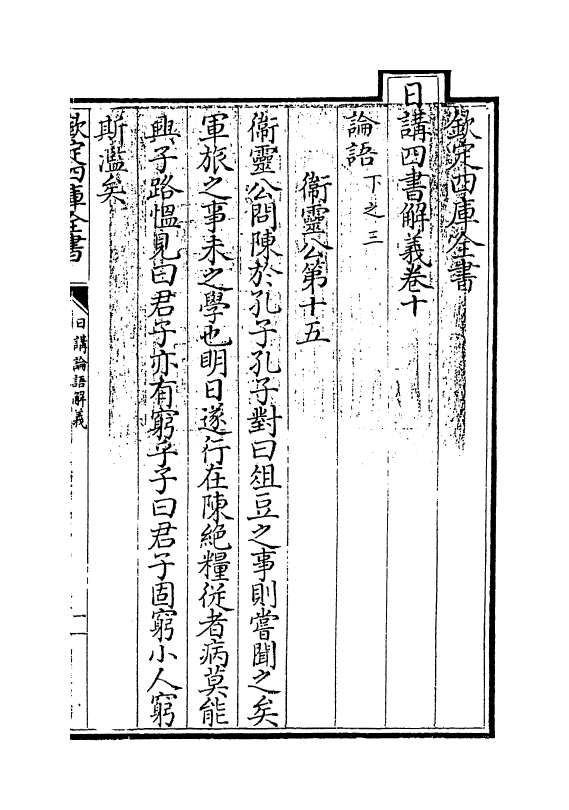 欽定四庫全書
日講四書解義卷十
論語下之三
衞靈公第十五
衞靈公問陳於孔子孔子對曰俎豆之事則嘗聞之矣
軍旅之事未之學也明日遂行在陳絶糧從者病莫能
興子路愠見曰君子亦有窮乎子曰君子固窮小人窮
斯濫矣
欽定四庫全書
日講論語解義
一